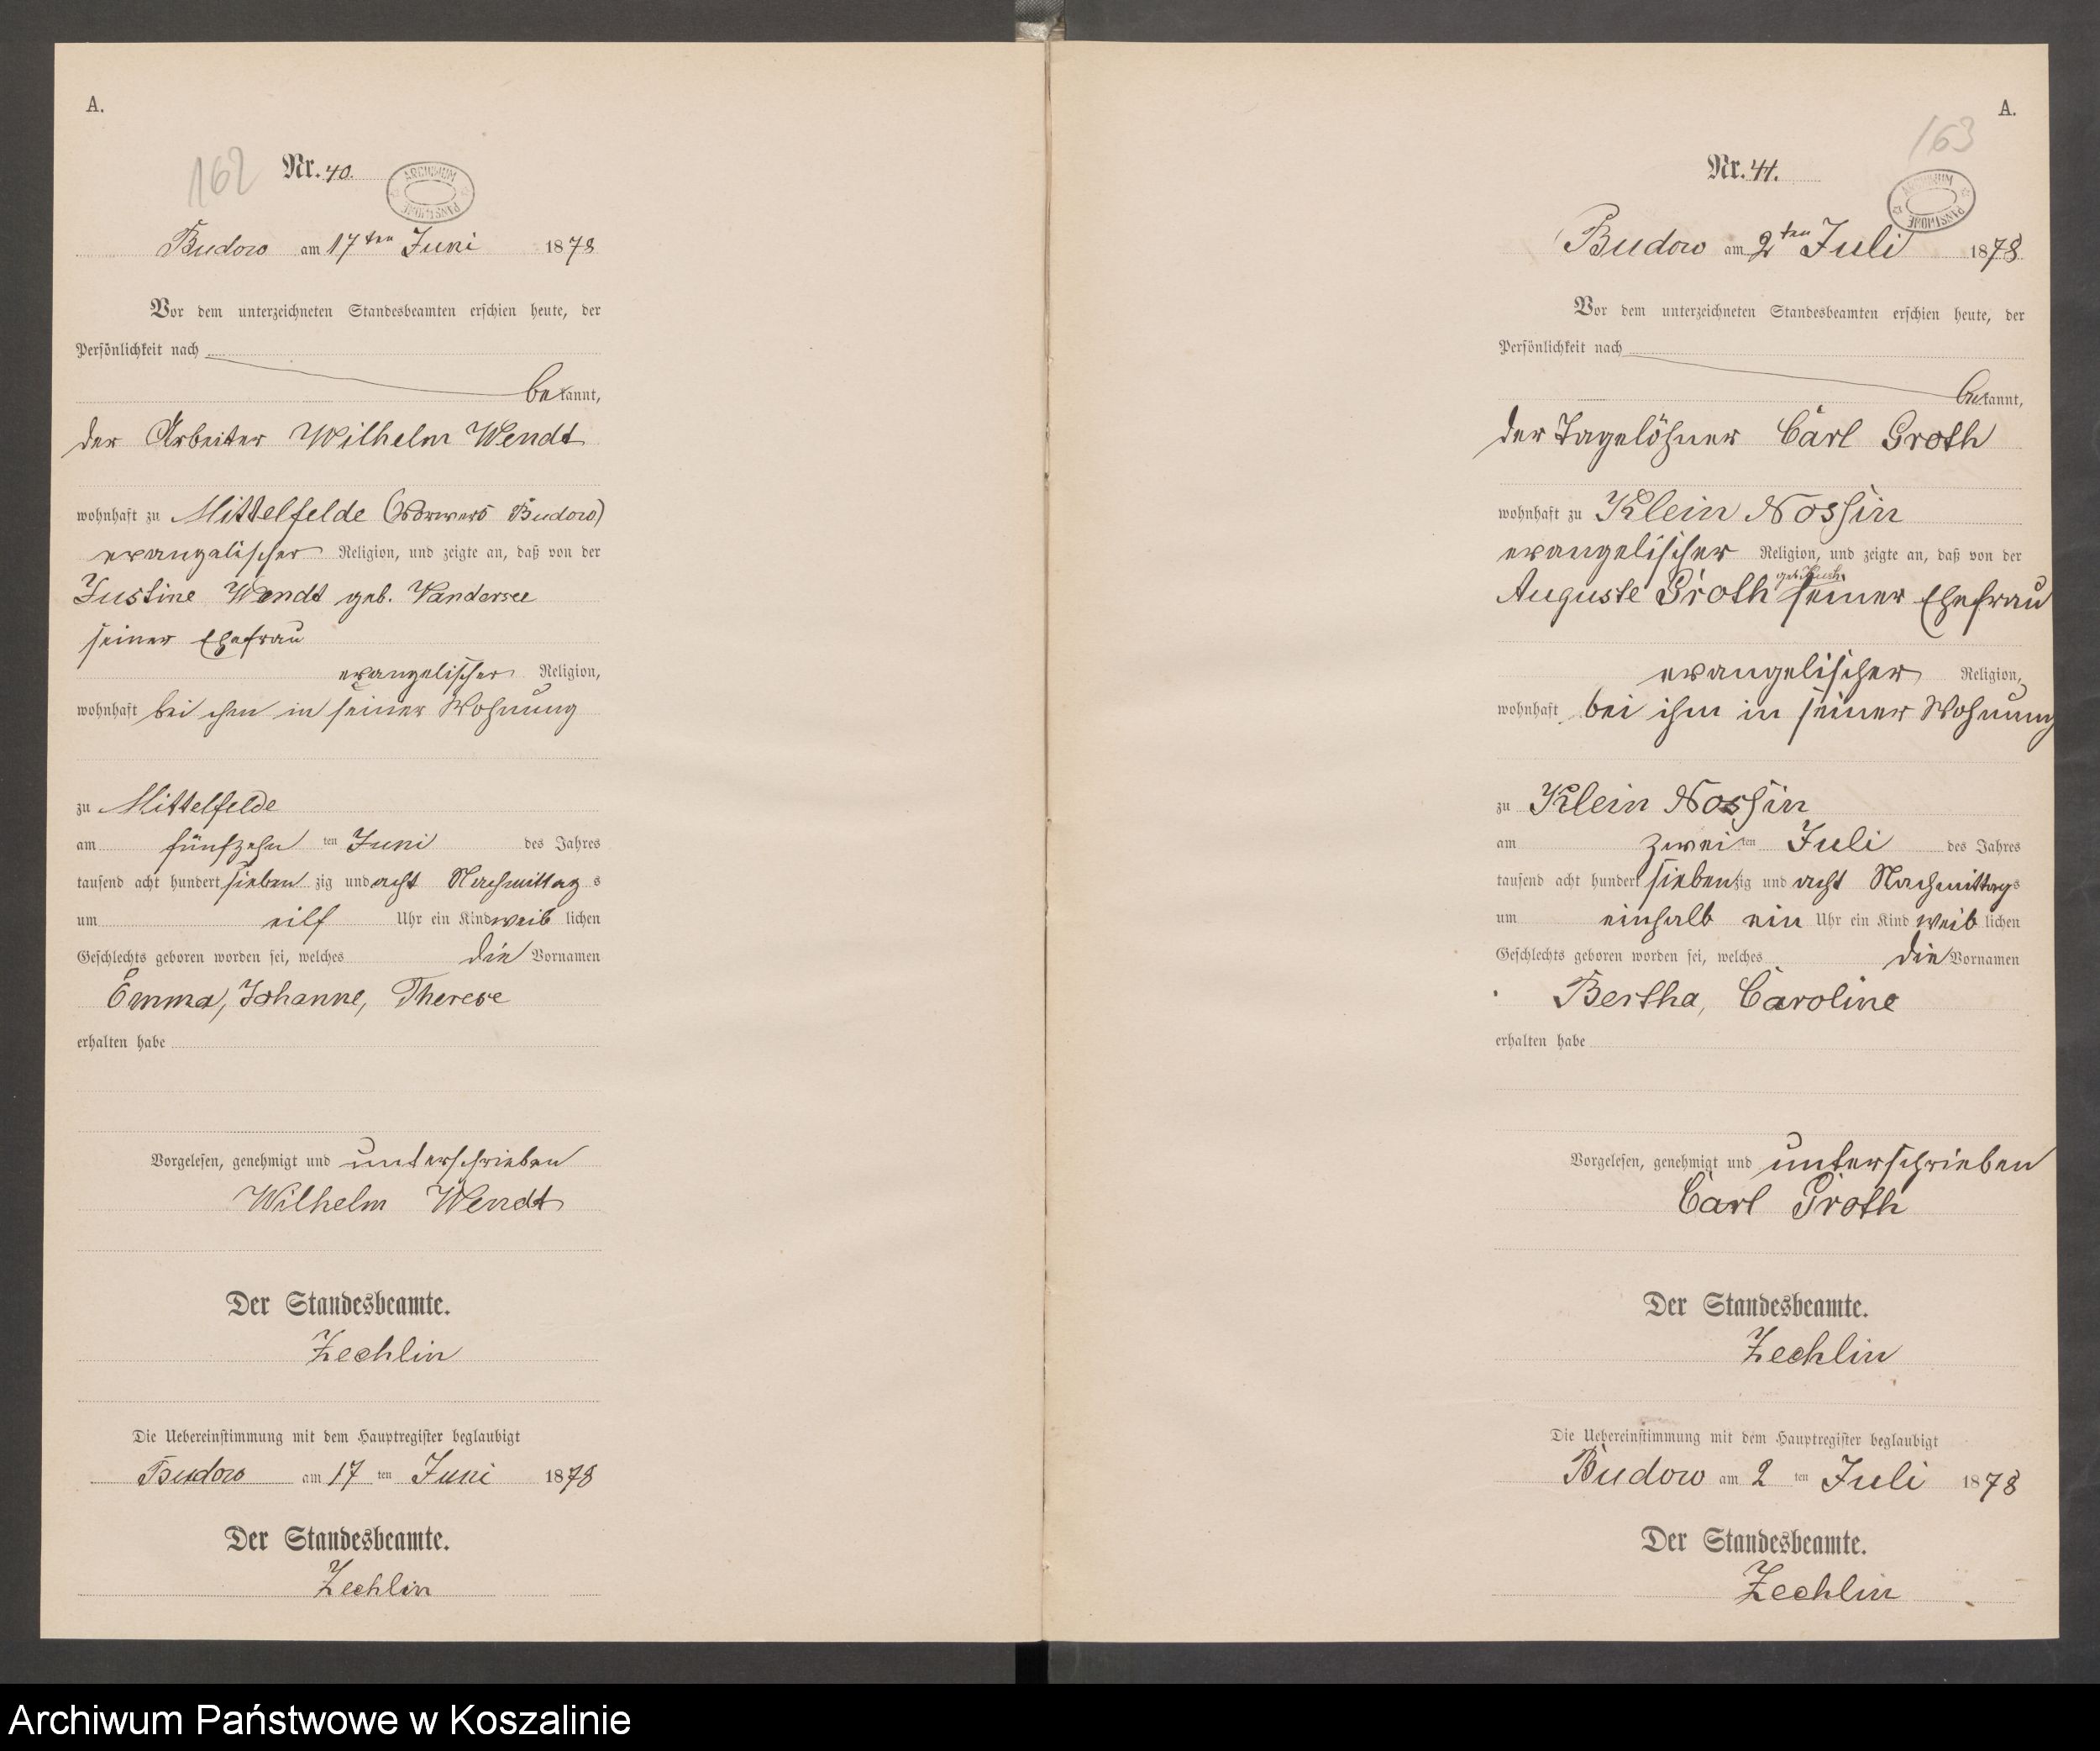 A.
162
Nr. 40.
ARCHIWUM PAŃSTWOWE
Budow am 17ten Juni 1878
Vor dem unterzeichneten Standesbeamten erschien heute, der
Persönlichkeit nach
bekannt,
der Arbeiter Wilhelm Wendt
wohnhaft zu Mittelfelde (Vorwerk Budow)
evangelischer Religion, und zeigte an, daß von der
Justine Wendt geb. Vandersee
seiner Ehefrau
evangelischer Religion,
wohnhaft bei ihm in seiner Wohnung
zu Mittelfelde
am fünfzehn ten Juni des Jahres
tausend acht hundert sieben zig und acht Nachmittag s
um eilf Uhr ein Kind weib lichen
Geschlechts geboren worden sei, welches die Vornamen
Emma, Johanne, Therese
erhalten habe
Vorgelesen, genehmigt und unterschrieben
Wilhelm Wendt
Der Standesbeamte.
Zechlin
Die Uebereinstimmung mit dem Hauptregister beglaubigt
Budow am 17 ten Juni 1878
Der Standesbeamte.
Zechlin
A.
163
Nr. 41.
ARCHIWUM PAŃSTWOWE
Budow am 2ten Juli 1878
Vor dem unterzeichneten Standesbeamten erschien heute, der
Persönlichkeit nach
bekannt,
der Tagelöhner Carl Groth
wohnhaft zu Klein Nossin
evangelischer Religion, und zeigte an, daß von der
geb.
Auguste Groth seiner Ehefrau
evangelischer Religion,
wohnhaft bei ihm in seiner Wohnung
zu Klein Nossin
am zwei ten Juli des Jahres
tausend acht hundert sieben zig und acht Nachmittag s
um einhalb ein Uhr ein Kind weib lichen
Geschlechts geboren worden sei, welches die Vornamen
Bertha, Caroline
erhalten habe
Vorgelesen, genehmigt und unterschrieben
Carl Groth
Der Standesbeamte.
Zechlin
Die Uebereinstimmung mit dem Hauptregister beglaubigt
Budow am 2 ten Juli 1878
Der Standesbeamte.
Zechlin
Archiwum Państwowe w Koszalinie